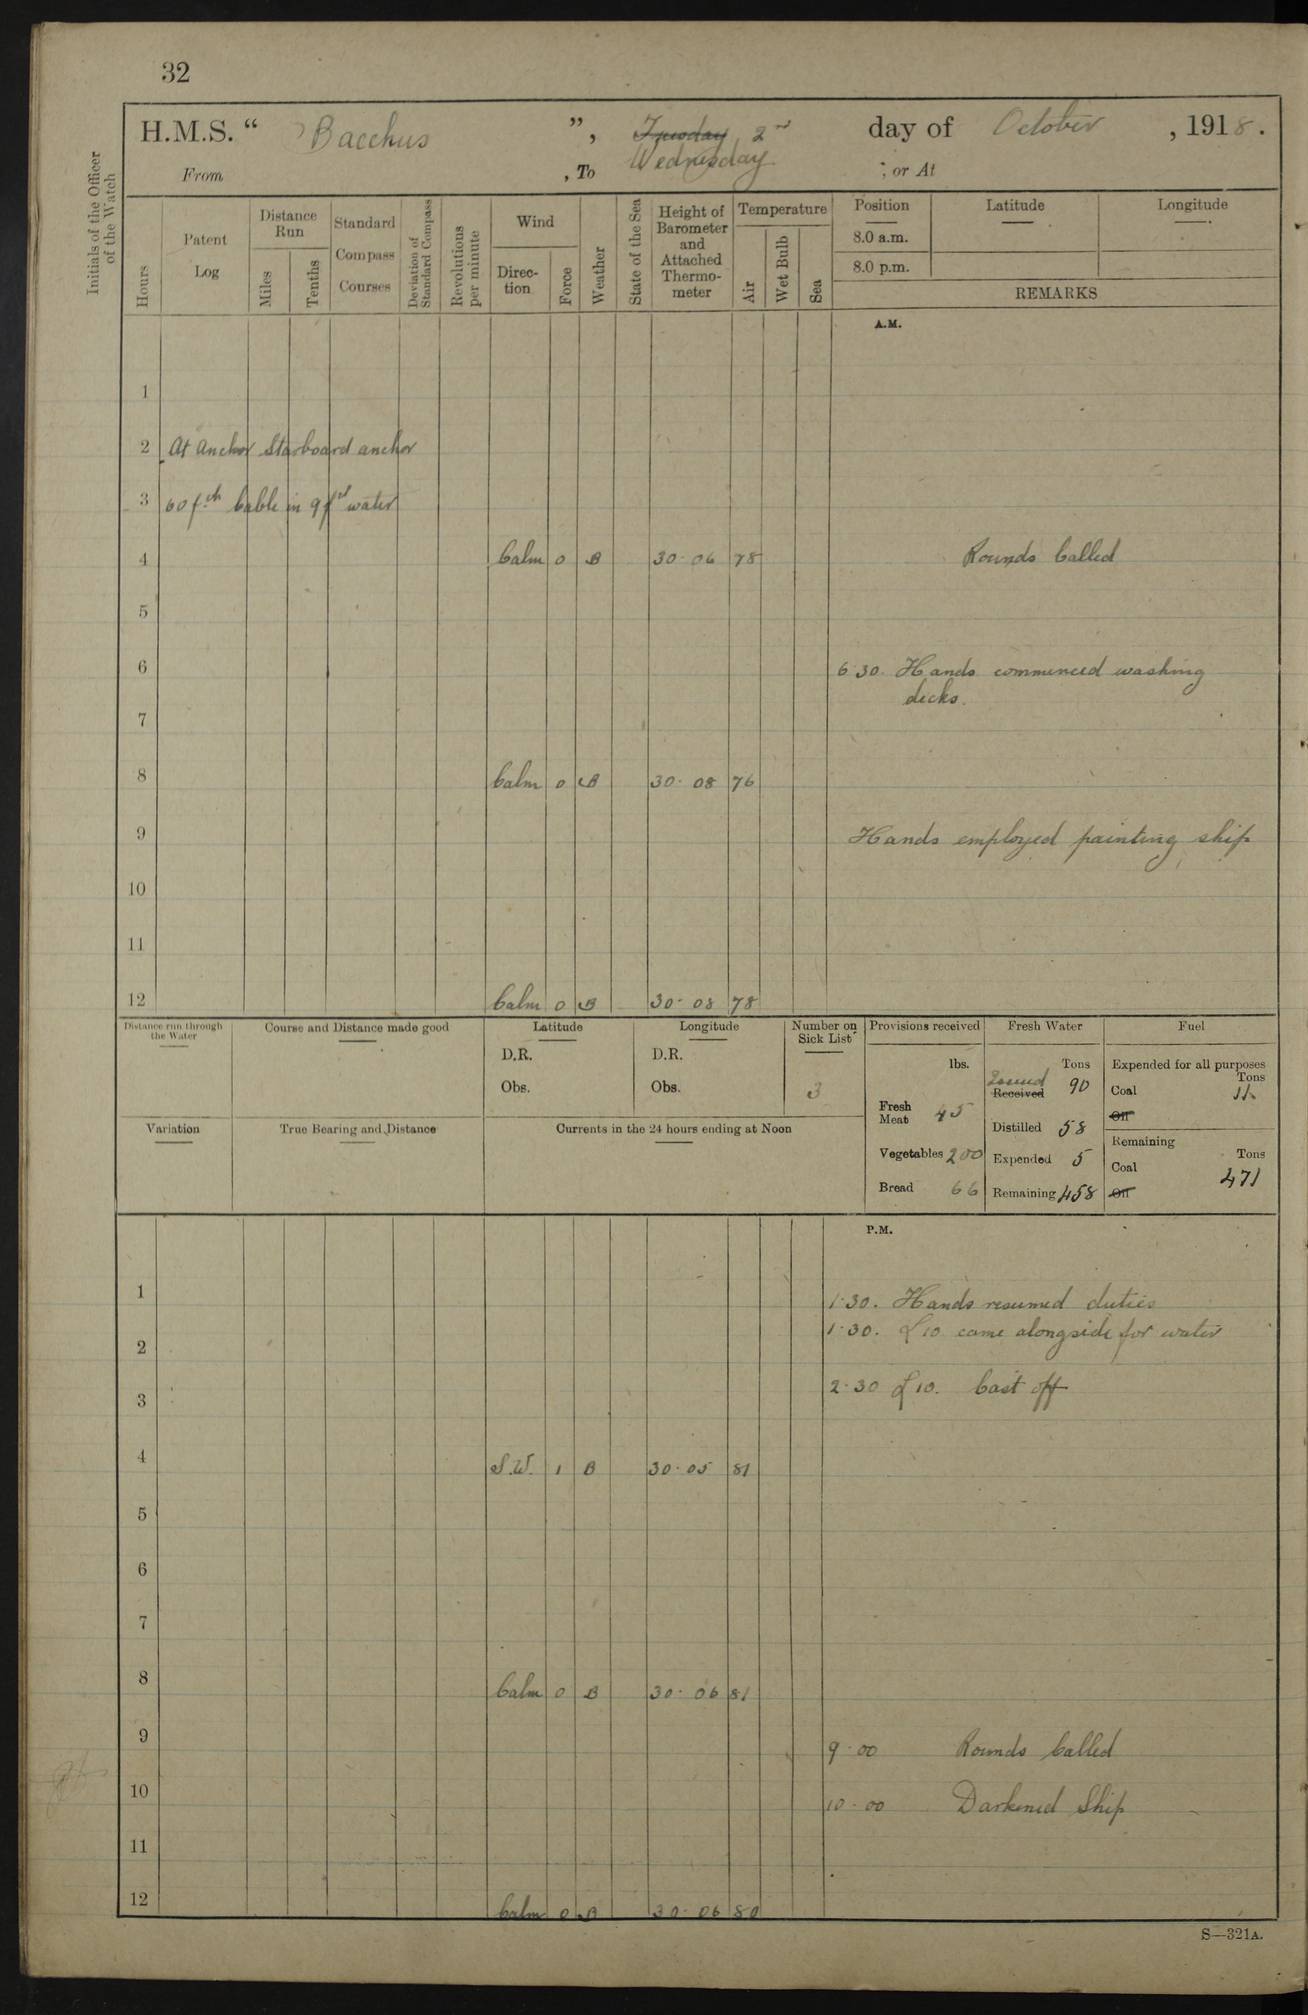 32
H.M.S. “ Bacchus ”, Tuesday 2nd day of October, 1918.
Wednesday
From , To ; or At
Initials of the Officer of the Watch
Hours
Patent Log
Distance Run
Miles
Tenths
Standard Compass Courses
Deviation of Standard Compass
Revolutions per minute
Wind
Direc-tion
Force
Weather
State of the Sea
Height of Barometer and Attached Thermo-meter
Temperature
Air
Wet Bulb
Sea
Position Latitude Longitude
8.0 a.m.
8.0 p.m.
REMARKS
A.M.
1
2 At Anchor Starboard anchor
3 60 fth Cable in 9 f water
4 Calm 0 B 30·06 78 Rounds Called
5
6 6·30. Hands commenced washing
decks.
7
8 Calm 0 B 30·08 76
9 Hands employed painting ship
10
11
12 Calm 0 B 30·08 78
Distance run through the Water
Course and Distance made good
Latitude
D.R.
Obs.
Longitude
D.R.
Obs.
Number on Sick List
3
Provisions received
lbs.
Fresh Meat 45
Vegetables 200
Bread 66
Fresh Water
Tons
Issued
Received 90
Distilled 58
Expended 5
Remaining 458
Fuel
Expended for all purposes
Tons
Coal 11
Oil
Remaining
Tons
Coal 471
Oil
Variation
True Bearing and Distance
Currents in the 24 hours ending at Noon
P.M.
1 1·30. Hands resumed duties
1·30. L10 came alongside for water
2
2·30 L10. Cast off
3
4 S.W. 1 B 30·05 81
5
6
7
8 Calm 0 B 30·06 81
9 9·00 Rounds Called
10 10·00 Darkened Ship
11
12 Calm 0 B 30·06 80
S—321A.